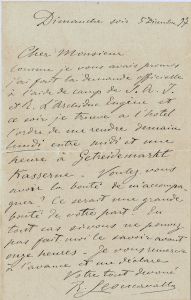 Dimanche soir 5 Décembre 97
Cher Monsieur
Comme je vous avais promis
j'ai fait la demande officielle
à l'aide de camp de S. A. I.
et R. l'Archiduc Eugène et
ce soir je trouve à l'hôtel
l'ordre de me rendre demain
lundi entre midi et une
heure à Getreidemarkt
Kaserne. Voulez vous
avoir la bonté de m'accompa-
gner? Ce serait une grande
bonté de votre part. En
tout cas si vous ne pouvez
pas fait moi le savoir avant
onze heures. Je vous remercie
à l'avance et me déclare
Votre tout dévoué
R. Leoncavallo